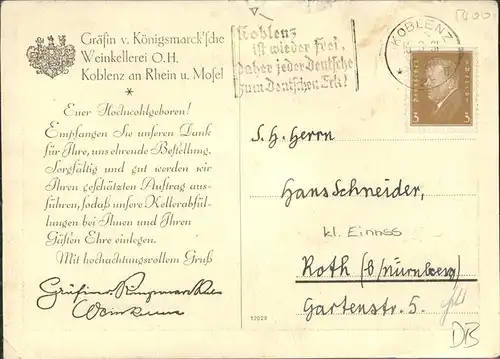 Gräfin v. Königsmarck'sche
Weinkellerei O.H.
Koblenz an Rhein u. Mosel
*
Euer Hochwohlgeboren!
Empfangen Sie unseren Dank
für Ihre, uns ehrende Bestellung,
Sorgfältig und gut werden wir
Ihren geschätzten Auftrag aus-
führen, sodaß unsere Kellerabfül-
lungen bei Ihnen und Ihren
Gästen Ehre einlegen.
Mit hochachtungsvollem Gruß
12028
Koblenz
ist wieder frei,
daher jeder Deutsche
zum Deutschen Eck!
KOBLENZ
3 3
S. H. Herrn
Hans Schneider,
kl. Einriss
Roth (b/Nürnberg)
Gartenstr. 5.
DB